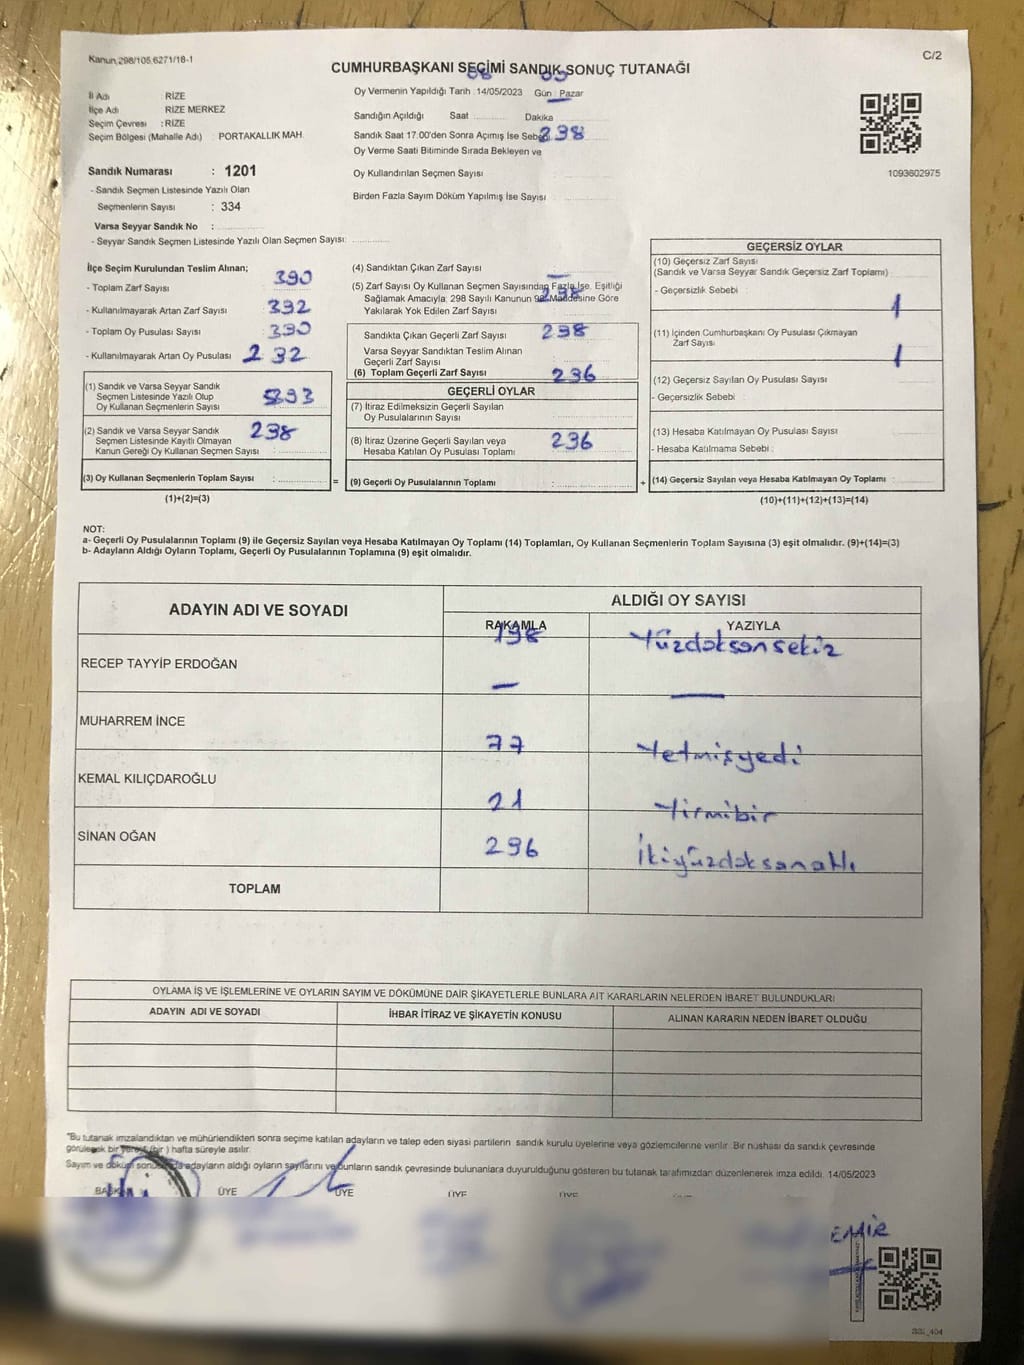 Kanun,298/105,6271/18-1
C/2
CUMHURBAŞKANI SEÇİMİ SANDIK SONUÇ TUTANAĞI
İl Adı RİZE
İlçe Adı RİZE MERKEZ
Seçim Çevresi : RİZE
Seçim Bölgesi (Mahalle Adı) : PORTAKALLIK MAH.
Sandık Numarası : 1201
- Sandık Seçmen Listesinde Yazılı Olan
Seçmenlerin Sayısı : 334
Varsa Seyyar Sandık No :
- Seyyar Sandık Seçmen Listesinde Yazılı Olan Seçmen Sayısı:
Oy Vermenin Yapıldığı Tarih : 14/05/2023 Gün : Pazar
Sandığın Açıldığı Saat Dakika
Sandık Saat 17:00'den Sonra Açımış İse Sebebi
238
Oy Verme Saati Bitiminde Sırada Bekleyen ve
Oy Kullandırılan Seçmen Sayısı
Birden Fazla Sayım Döküm Yapılmış İse Sayısı
1093602975
İlçe Seçim Kurulundan Teslim Alınan;
- Toplam Zarf Sayısı 390
- Kullanılmayarak Artan Zarf Sayısı 392
- Toplam Oy Pusulası Sayısı 390
- Kullanılmayarak Artan Oy Pusulası 232
(1) Sandık ve Varsa Seyyar Sandık
Seçmen Listesinde Yazılı Olup
Oy Kullanan Seçmenlerin Sayısı
(2) Sandık ve Varsa Seyyar Sandık
Seçmen Listesinde Kayıtlı Olmayan
Kanun Gereği Oy Kullanan Seçmen Sayısı
238
(3) Oy Kullanan Seçmenlerin Toplam Sayısı : =
(1)+(2)=(3)
(4) Sandıktan Çıkan Zarf Sayısı
(5) Zarf Sayısı Oy Kullanan Seçmen Sayısından Fazla İse, Eşitliği
Sağlamak Amacıyla, 298 Sayılı Kanunun 98. Maddesine Göre
Yakılarak Yok Edilen Zarf Sayısı
Sandıkta Çıkan Geçerli Zarf Sayısı 238
Varsa Seyyar Sandıktan Teslim Alınan
Geçerli Zarf Sayısı
(6) Toplam Geçerli Zarf Sayısı 236
GEÇERLİ OYLAR
(7) İtiraz Edilmeksizin Geçerli Sayılan
Oy Pusulalarının Sayısı
(8) İtiraz Üzerine Geçerli Sayılan veya
Hesaba Katılan Oy Pusulası Toplamı 236
(9) Geçerli Oy Pusulalarının Toplamı : +
GEÇERSİZ OYLAR
(10) Geçersiz Zarf Sayısı
(Sandık ve Varsa Seyyar Sandık Geçersiz Zarf Toplamı)
- Geçersizlik Sebebi :
1
(11) İçinden Cumhurbaşkanı Oy Pusulası Çıkmayan
Zarf Sayısı
1
(12) Geçersiz Sayılan Oy Pusulası Sayısı
- Geçersizlik Sebebi :
(13) Hesaba Katılmayan Oy Pusulası Sayısı
- Hesaba Katılmama Sebebi :
(14) Geçersiz Sayılan veya Hesaba Katılmayan Oy Toplamı :
(10)+(11)+(12)+(13)=(14)
NOT:
a- Geçerli Oy Pusulalarının Toplamı (9) ile Geçersiz Sayılan veya Hesaba Katılmayan Oy Toplamı (14) Toplamları, Oy Kullanan Seçmenlerin Toplam Sayısına (3) eşit olmalıdır. (9)+(14)=(3)
b- Adayların Aldığı Oyların Toplamı, Geçerli Oy Pusulalarının Toplamına (9) eşit olmalıdır.
ADAYIN ADI VE SOYADI ALDIĞI OY SAYISI
RAKAMLA YAZIYLA
198 Yüzdoksansekiz
RECEP TAYYİP ERDOĞAN
— —
MUHARREM İNCE
77 Yetmişyedi
KEMAL KILIÇDAROĞLU
21 Yirmibir
SİNAN OĞAN
296 İkiyüzdoksanaltı
TOPLAM
OYLAMA İŞ VE İŞLEMLERİNE VE OYLARIN SAYIM VE DÖKÜMÜNE DAİR ŞİKAYETLERLE BUNLARA AİT KARARLARIN NELERDEN İBARET BULUNDUKLARI
ADAYIN ADI VE SOYADI İHBAR İTİRAZ VE ŞİKAYETİN KONUSU ALINAN KARARIN NEDEN İBARET OLDUĞU
"Bu tutanak imzalandıktan ve mühürlendikten sonra seçime katılan adayların ve talep eden siyasi partilerin sandık kurulu üyelerine veya gözlemcilerine verilir. Bir nüshası da sandık çevresinde
görülecek bir yere 1 (bir) hafta süreyle asılır.
Sayım ve döküm sonucunda adayların aldığı oyların sayılarını ve bunların sandık çevresinde bulunanlara duyurulduğunu gösteren bu tutanak tarafımızdan düzenlenerek imza edildi. 14/05/2023
BAŞKAN ÜYE ÜYE ÜYE ÜYE
EMİR